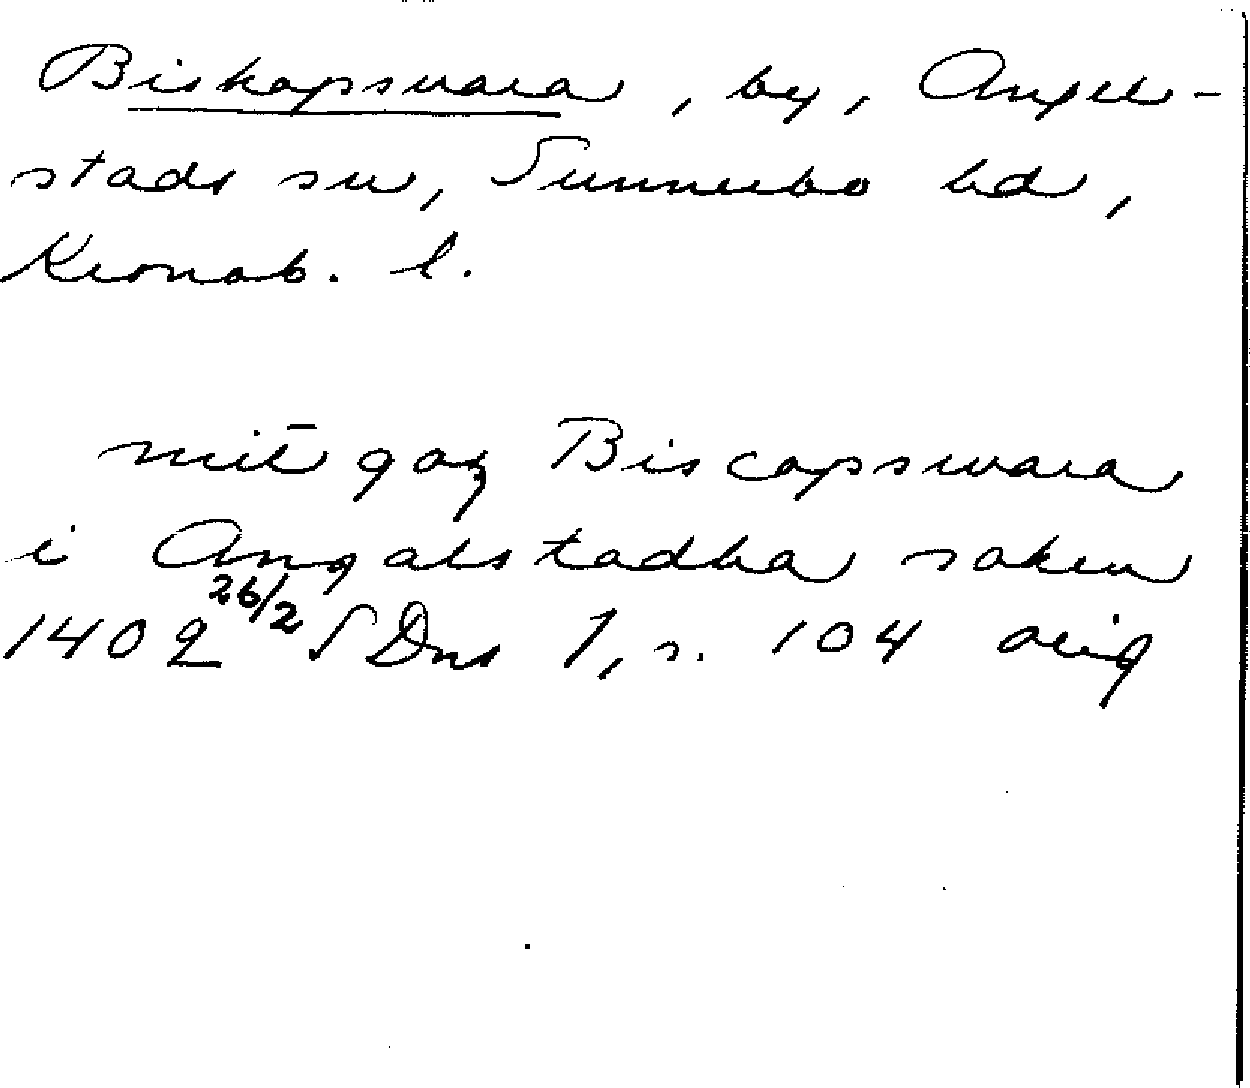 Biskopsvara, by, Angel-
stads sn, Sunnerbo hd,
Kronob. l.
mit goz Biscopswara
i Angalstadha soken
1402 26/2 SDns 1, s. 104 orig